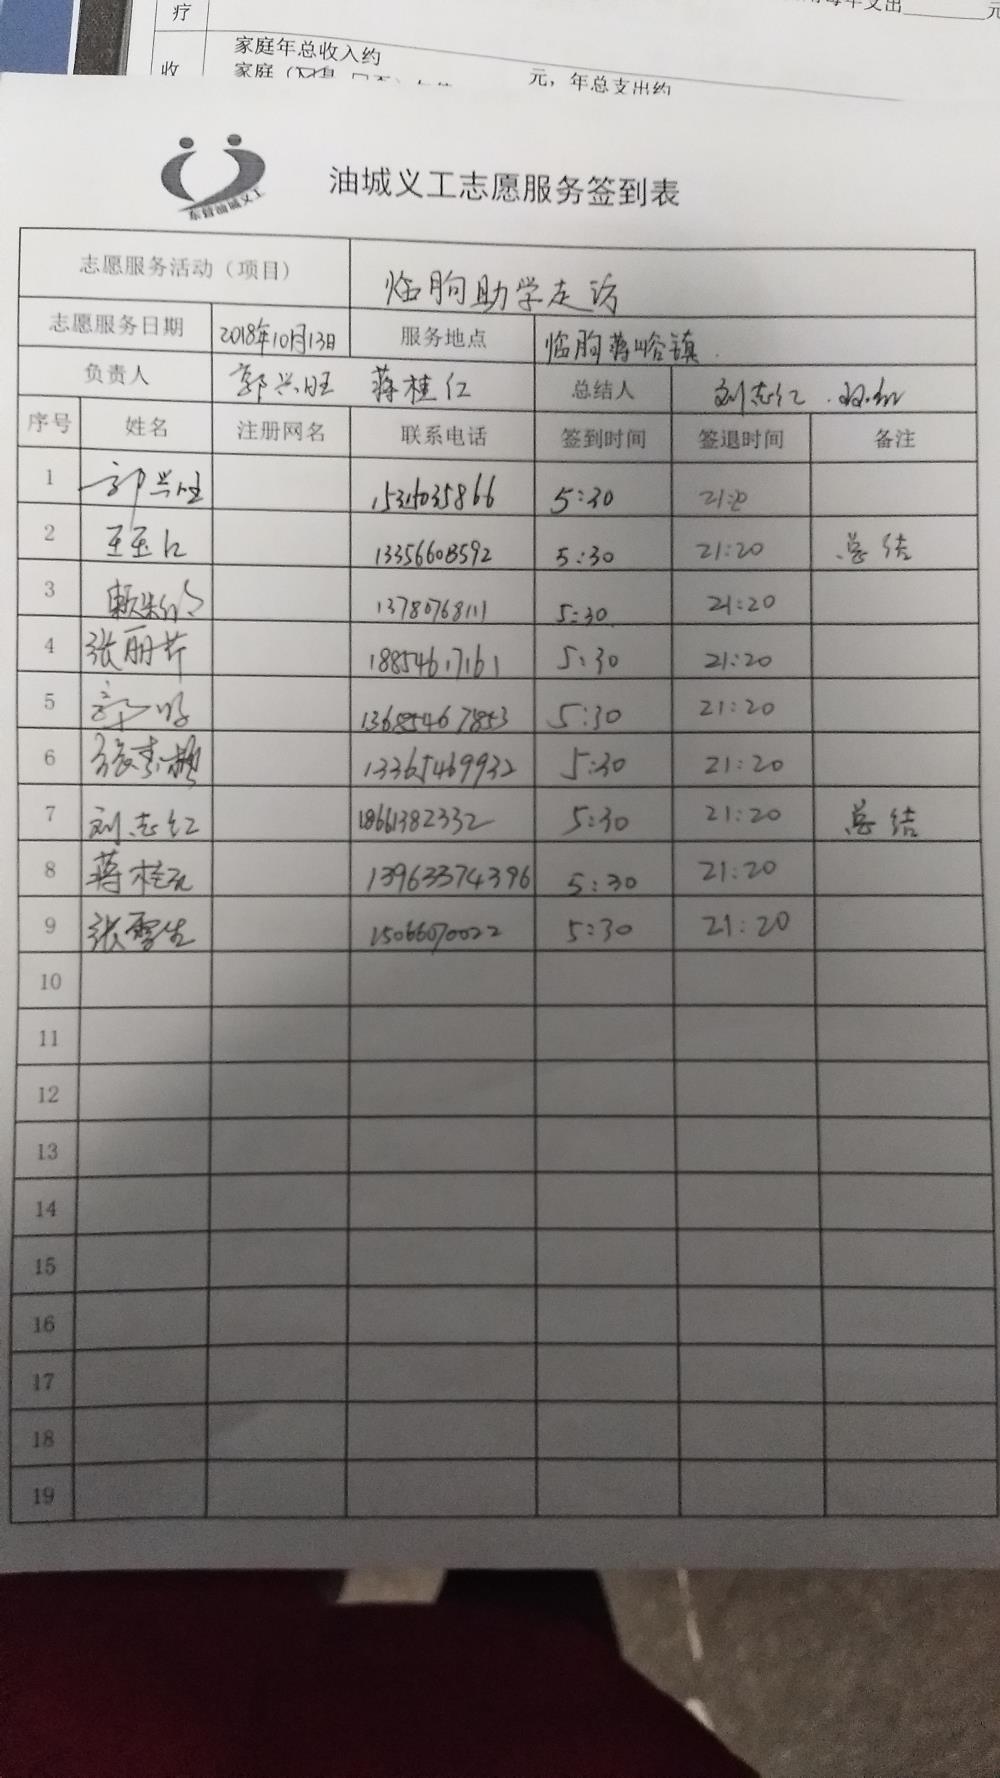 疗
收
家庭年总收入约
元，年总支出约
元
东营油城义工
油城义工志愿服务签到表
志愿服务活动（项目） 临朐助学走访
志愿服务日期 2018年10月13日 服务地点 临朐蒋峪镇
负责人 郭兴旺 蒋桂仁 总结人 刘志红
序号 姓名 注册网名 联系电话 签到时间 签退时间 备注
1 郭兴旺 5:30
2 13356603592 5:30 21:20 总结
3 13780768111 5:30 21:20
4 张丽芹 18854617161 5:30 21:20
5 13685467853 5:30 21:20
6 13365469932 5:30 21:20
7 刘志红 18661382332 5:30 21:20 总结
8 13963374396 5:30 21:20
9 张雪生 15066070022 5:30 21:20
10
11
12
13
14
15
16
17
18
19